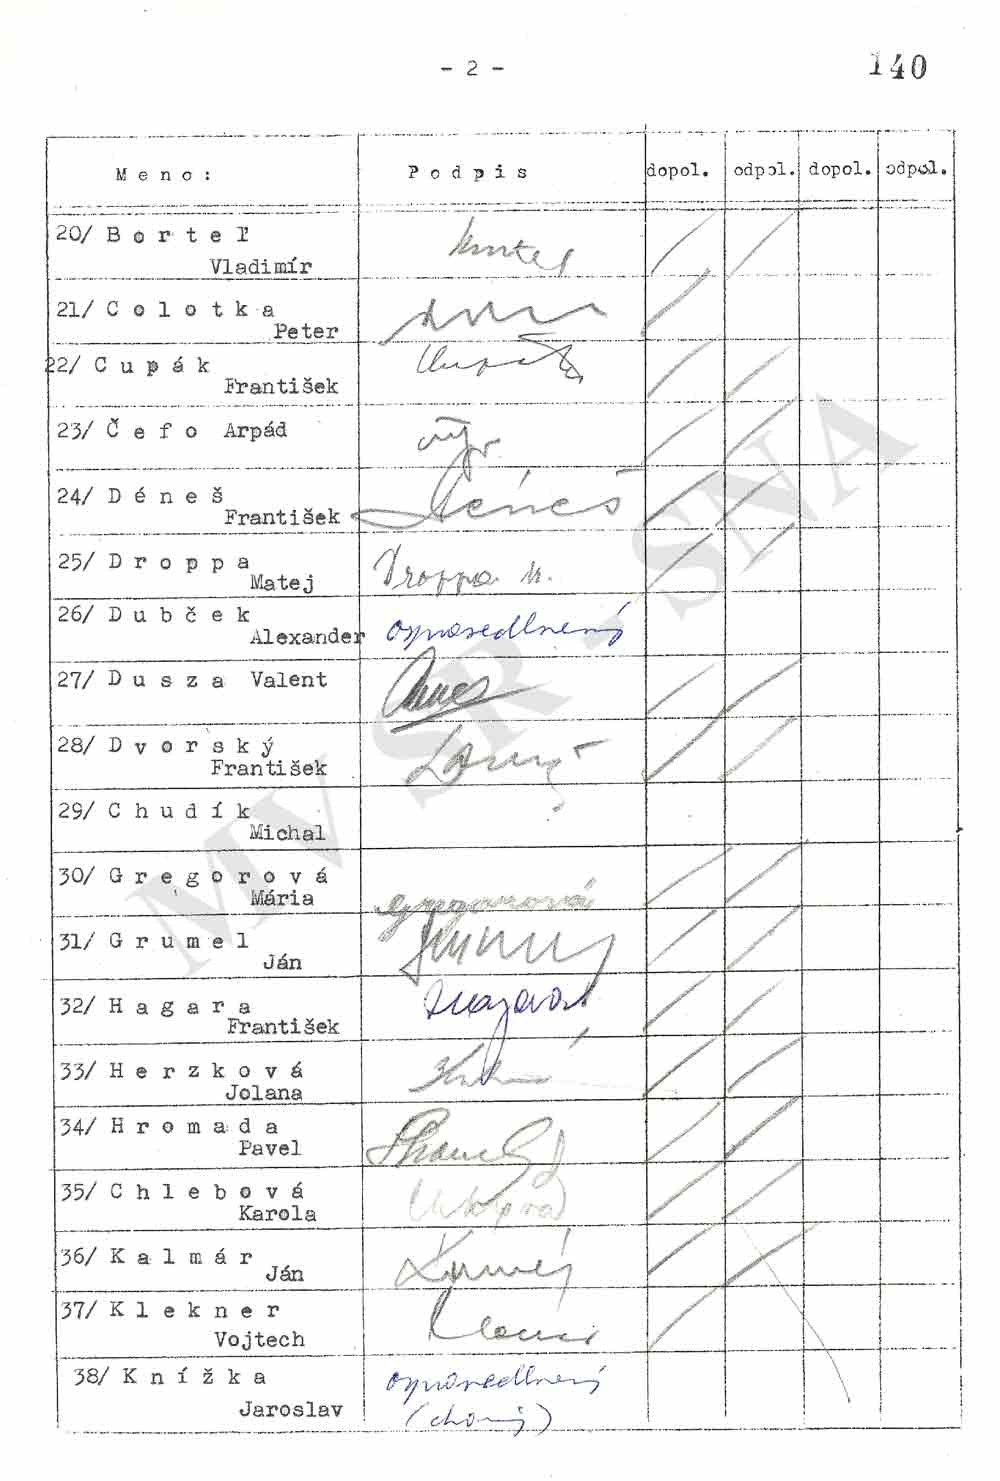 - 2 -
140
Meno: Podpis dopol. odpol. dopol. odpol.
20/ Borteľ
Vladimír
21/ Colotka
Peter
22/ Cupák
František
23/ Čefo Arpád
24/ Déneš Déneš
František
25/ Droppa Droppa M.
Matej
26/ Dubček ospravedlnený
Alexander
27/ Dusza Valent
28/ Dvorský
František
29/ Chudík
Michal
30/ Gregorová Gregorová
Mária
31/ Grumel
Ján
32/ Hagara
František
33/ Herzková
Jolana
34/ Hromada
Pavel
35/ Chlebová
Karola
36/ Kalmár
Ján
37/ Klekner
Vojtech
38/ Knížka ospravedlnený
Jaroslav (chorý)
MV SR - SNA